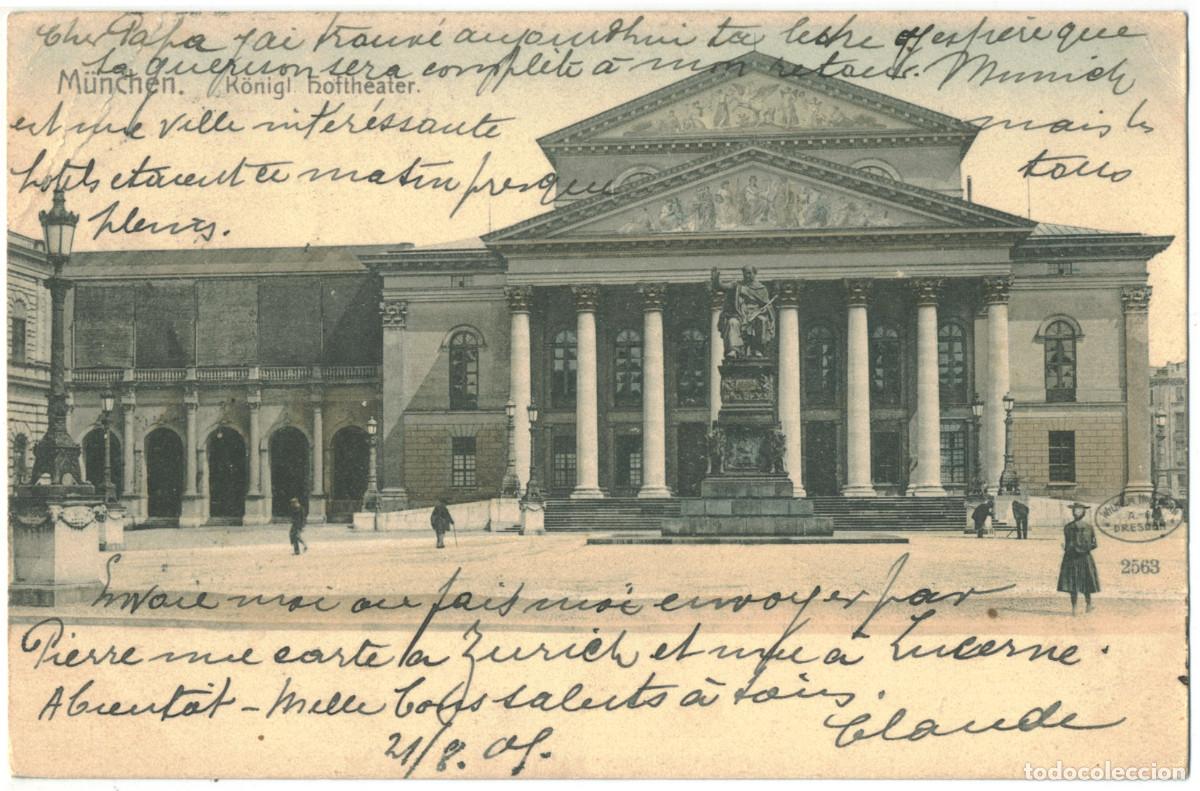 Cher Papa j'ai trouvé aujourdhui ta lettre et j'espère que
ta guérison sera complète à mon retour. Munich
München. Königl. Hoftheater.
est une ville intéressante mais les
hotels étaient ce matin presque tous
pleins.
A.
DRESDEN
2563
Envoie moi ou fais moi envoyer par
Pierre une carte à Zurich et une à Lucerne.
A bientôt - Mille bons saluts à tous.
Claude
21/8.05.
todocoleccion